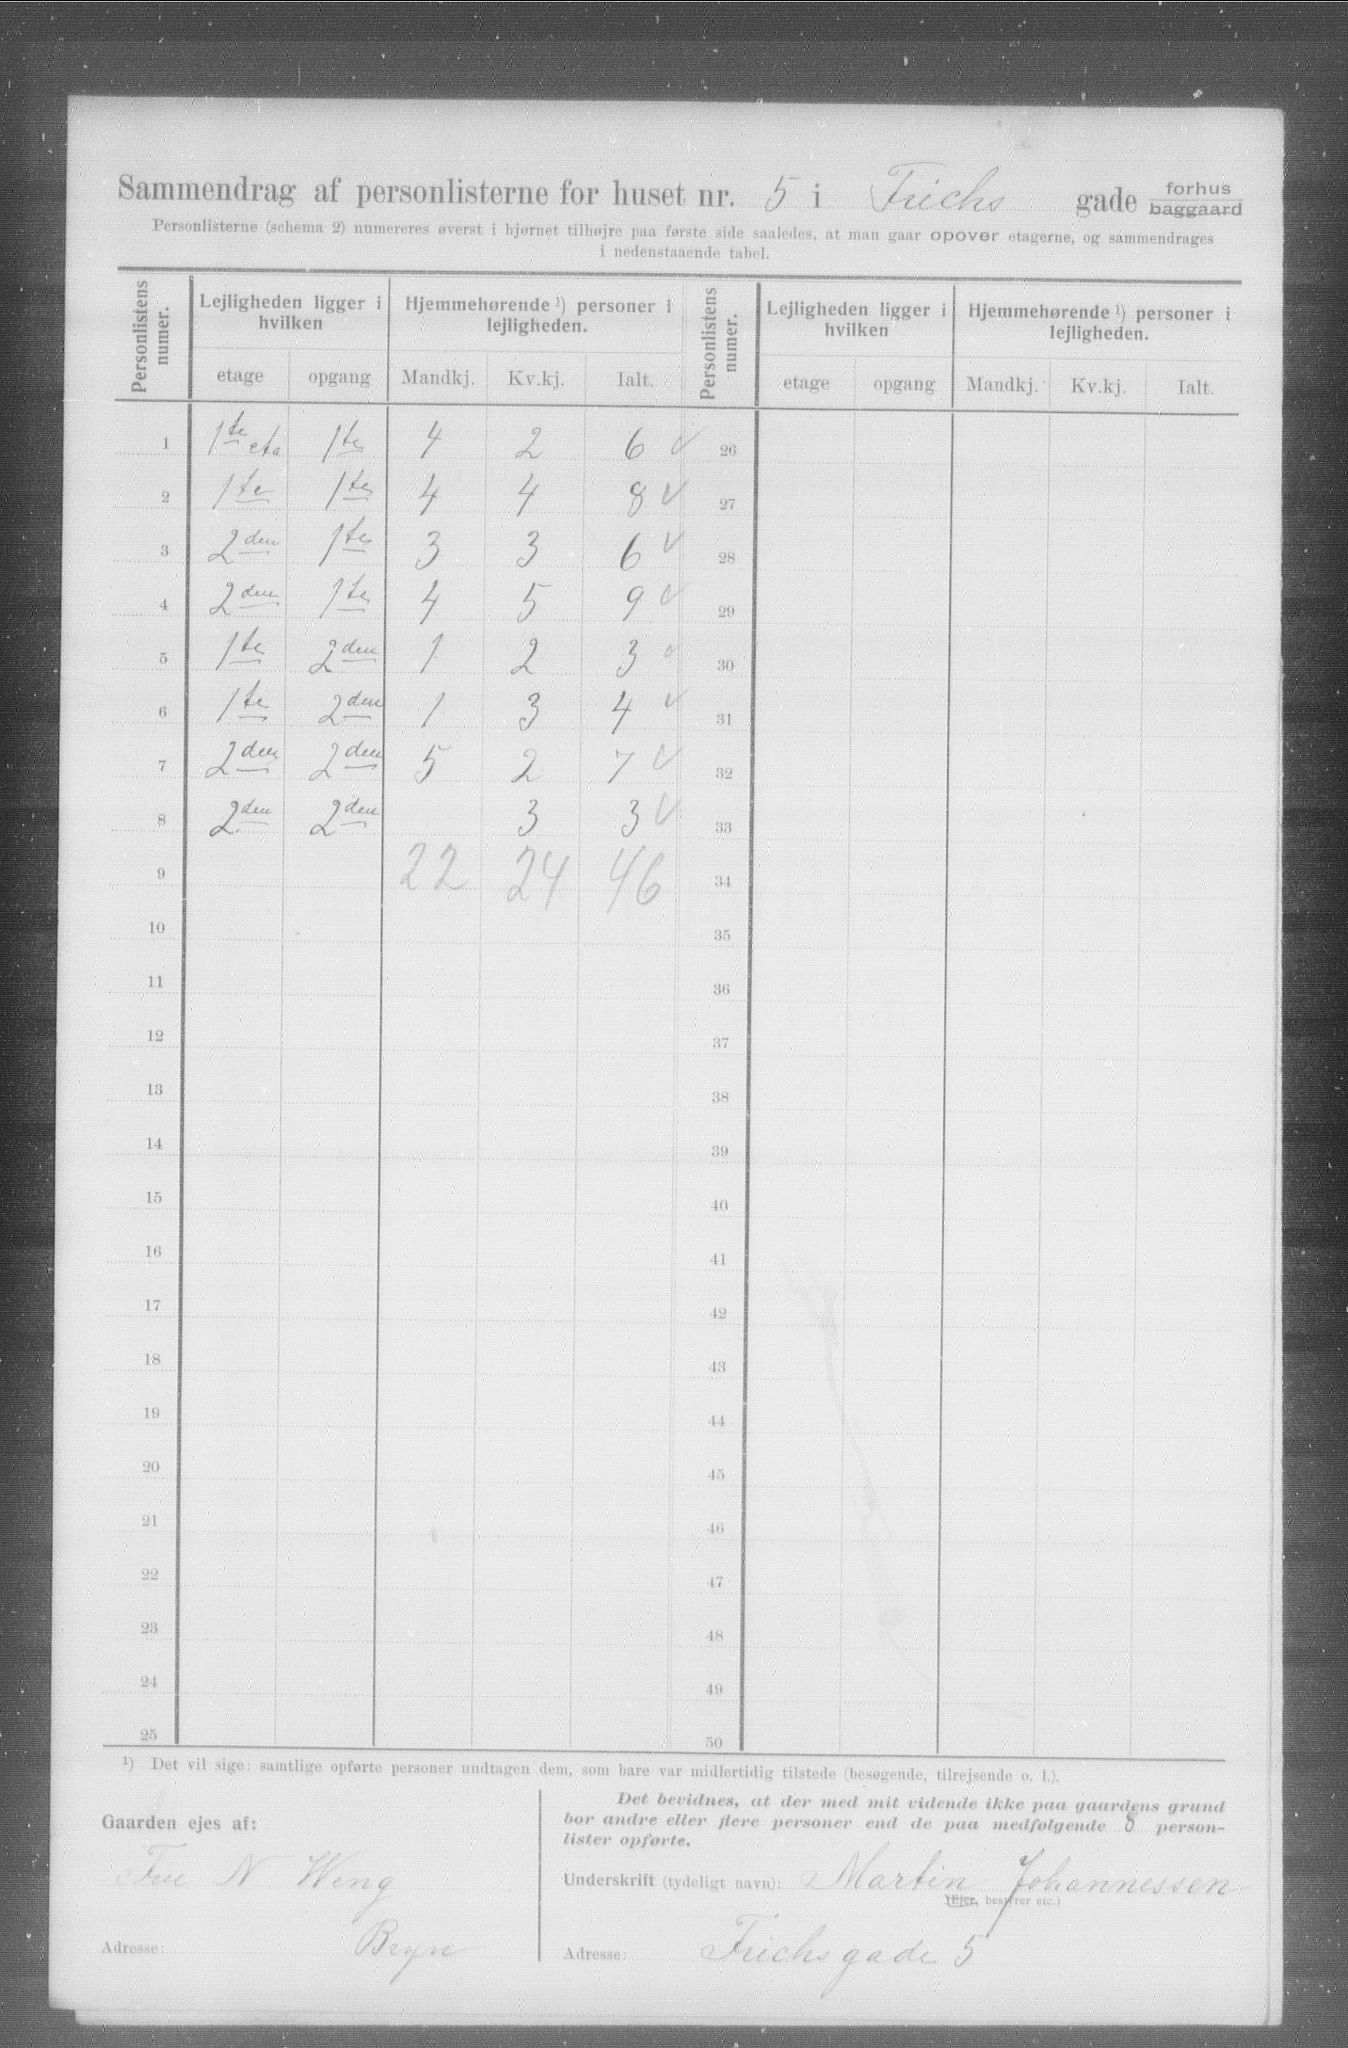 Sammendrag af personlisterne for huset nr. 5 i Frichs gade forhus
baggaard
Personlisterne (schema 2) numereres øverst i hjørnet tilhøjre paa første side saaledes, at man gaar opover etagerne, og sammendrages
i nedenstaaende tabel.
Personlistens numer. Lejligheden ligger i hvilken Hjemmehørende ¹) personer i lejligheden. Personlistens numer. Lejligheden ligger i hvilken Hjemmehørende ¹) personer i lejligheden.
etage opgang Mandkj. Kv.kj. Ialt. etage opgang Mandkj. Kv.kj. Ialt.
1 1te eta 1te 4 2 6 ✓ 26
2 1te 1te 4 4 8 ✓ 27
3 2den 1te 3 3 6 ✓ 28
4 2den 1te 4 5 9 ✓ 29
5 1te 2den 1 2 3 ✓ 30
6 1te 2den 1 3 4 ✓ 31
7 2den 2den 5 2 7 ✓ 32
8 2den 2den 3 3 ✓ 33
9 22 24 46 34
10 35
11 36
12 37
13 38
14 39
15 40
16 41
17 42
18 43
19 44
20 45
21 46
22 47
23 48
24 49
25 50
¹) Det vil sige: samtlige opførte personer undtagen dem, som bare var midlertidig tilstede (besøgende, tilrejsende o. l.).
Gaarden ejes af:
Frue N Weng
Adresse: Bryn
Det bevidnes, at der med mit vidende ikke paa gaardens grund
bor andre eller flere personer end de paa medfølgende 8 person-
lister opførte.
Underskrift (tydeligt navn): Martin Johannessen
(Ejer, bestyrer etc.)
Adresse: Frichsgade 5